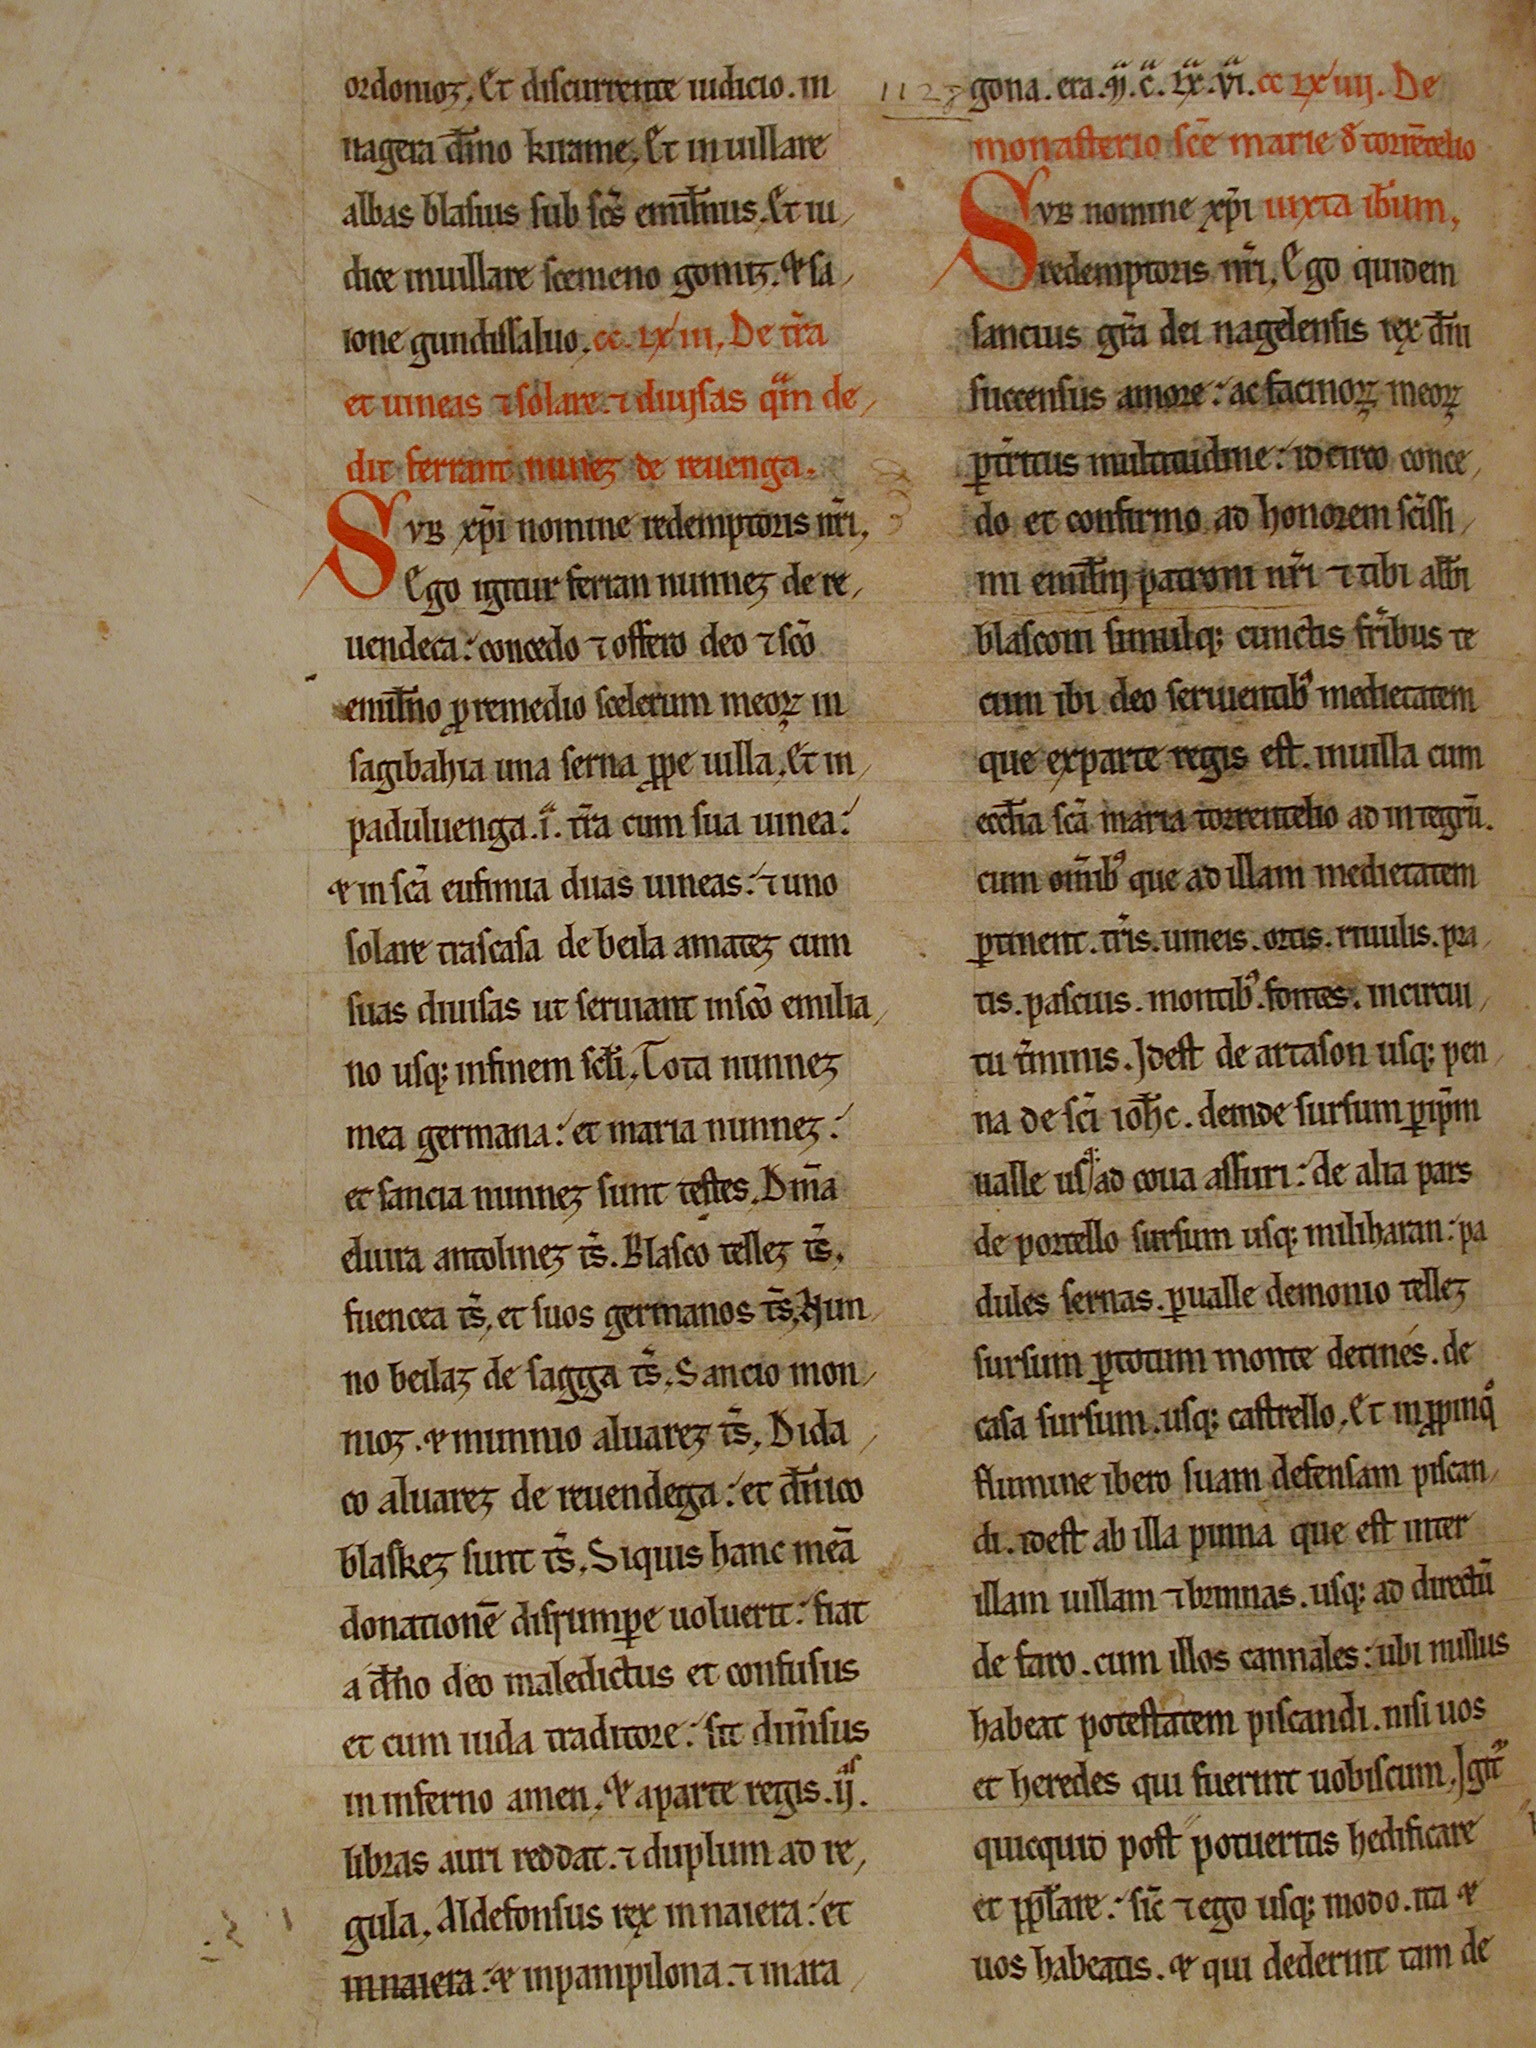 ordonioz. Et discurrente iudicio. in
nagera dn̄o kirame. Et in uillare
albas blasius sub sc̄s emilīnus. Et iu
dice in uillare scemeno gomiz. & sa
ione gundissaluo. cc. lx iii. De tr̄a
et uineas ⁊ solare. ⁊ diuisas qm̄ de
dit ferrant nunez de reuenga.
SVB xp̄i nomine redemptoris nr̄i.
Ego igitur ferran nunnez de re
uendeca: concedo ⁊ offero deo ⁊ sc̄o
emilīno ꝓ remedio scelerum meoꝝ in
sagibahia una serna ꝓpe uilla. Et in
paduluenga .i. tr̄a cum sua uinea:
& in sc̄a eufimia duas uineas: ⁊ uno
solare trascasa de beila amatez cum
suas diuisas ut seruiant in sc̄o emilia
no usq; in finem sc̄li. Tota nunnez
mea germana: et maria nunnez:
et sancia nunnez sunt testes. Dm̄a
eluira antolinez ts̄. Blasco tellez ts̄.
fuencea ts̄. et suos germanos ts̄. Nun
no beilaz de sagga ts̄. Sancio mon
nioz. & munnio aluarez ts̄. Dida
co aluarez de reuendega: et dn̄ico
blaskez sunt ts̄. Siquis hanc meā
donationē disrumpe uoluerit: fiat
a dn̄o deo maledictus et confusus
et cum iuda traditore: sit dim̄sus
in inferno amen. & aparte regis .ij.as
libras auri reddat. ⁊ duplum ad re
gula. Aldefonsus rex in naiera: et
in naiera: & in pampilona. ⁊ in ara
1128
gona. era .ij. c̄. lx. vi. cc lx iiij. De
monasterio sc̄e marie d̄ torrētelio
SVB nomine xp̄i iuxta ibr̄um.
redemptoris nr̄i. Ego quidem
sancius gr̄a dei nagelensis rex dn̄i
succensus amore: ac facinoꝝ meoꝝ
ꝑtr̄itus multitudine: idcirco conce
do et confirmo ad honorem sc̄issi
mi emilīnj patroni nr̄i ⁊ tibi abb̄i
blasconi simulq; cunctis fr̄ibus te
cum ibi deo seruientibꝰ medietatem
que exparte regis est. in uilla cum
eccl̄ia sc̄a maria torrentelio ad integrū.
cum om̄ibꝰ que ad illam medietatem
ꝑtinent. tr̄is. uineis. ortis. riuulis. pra
tis. pascuis. montibꝰ. fontes. incircui
tu t̄minis. Idest de artason usq; pen
na de sc̄i ioh̄c. deinde sursum ꝑ ip̄m
ualle usq; ad coua assuri: de alia pars
de portello sursum usq; miliharan: pa
dules sernas. ꝑ ualle demonio tellez
sursum ꝑ totum monte detines. de
casa sursum. usq; castrello. Et in ꝓpinqͦ
flumine ibero suam defensam piscan
di. idest ab illa pinna que est inter
illam uillam ⁊ brinnas. usq; ad directū
de faro. cum illos cannales: ubi nullus
habeat potestatem piscandi. nisi uos
et heredes qui fuerint uobiscum. Igit͛
quicquid post potueritis hedificare
et pop̄lare: sic̄ ⁊ ego usq; modo. ita &
uos habeatis. & qui dederint tam de